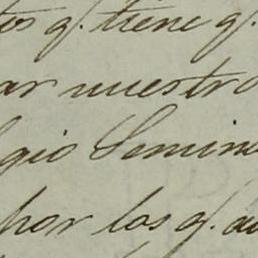 tos q.' tiene q.'
ar nuestro
gio Semina
por los q.' au